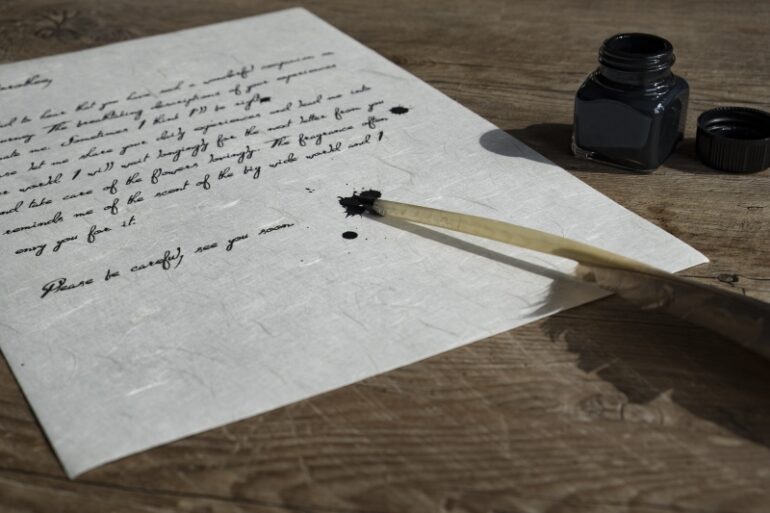 to hear that you have had a wonderful companion on
The breathtaking descriptions of your experiences
me. Sometimes I that I'll be
let me share your daily experiences and me
world. I will wait longingly for the next letter from you
and take care of the flowers lovingly. The fragrance often
reminds me of the scent of the big wide world and I
envy you for it.
Please be careful, see you soon